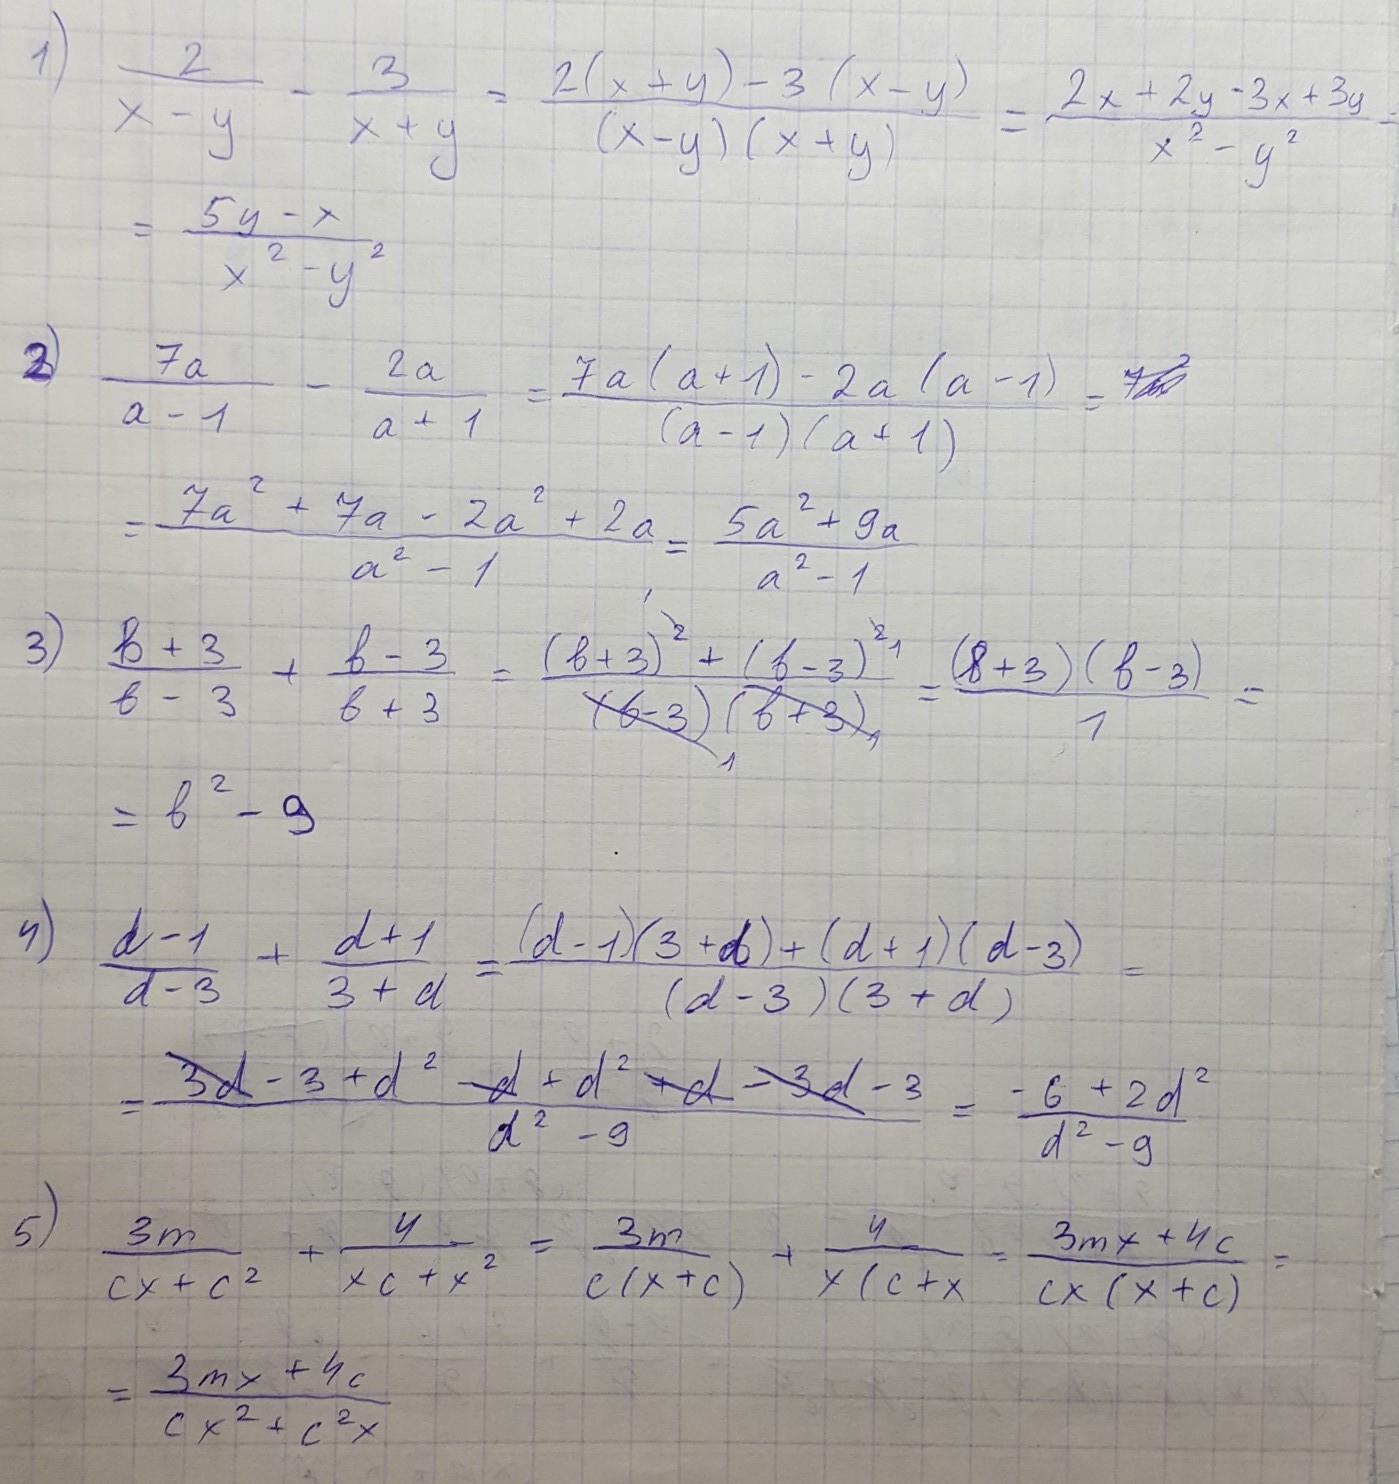 1) 2/(x-y) - 3/(x+y) = (2(x+y)-3(x-y))/((x-y)(x+y)) = (2x+2y-3x+3y)/(x²-y²) =
= (5y-x)/(x²-y²)
2) 7a/(a-1) - 2a/(a+1) = (7a(a+1)-2a(a-1))/((a-1)(a+1)) =
= (7a²+7a-2a²+2a)/(a²-1) = (5a²+9a)/(a²-1)
3) (b+3)/(b-3) + (b-3)/(b+3) = ((b+3)²+(b-3)²)/((b-3)(b+3)) = ((b+3)(b-3))/1 =
= b²-9
4) (d-1)/(d-3) + (d+1)/(3+d) = ((d-1)(3+d)+(d+1)(d-3))/((d-3)(3+d)) =
= (3d-3+d²-d+d²+d-3d-3)/(d²-9) = (-6+2d²)/(d²-9)
5) 3m/(cx+c²) + 4/(xc+x²) = 3m/(c(x+c)) + 4/(x(c+x) = (3mx+4c)/(cx(x+c)) =
= (3mx+4c)/(cx²+c²x)